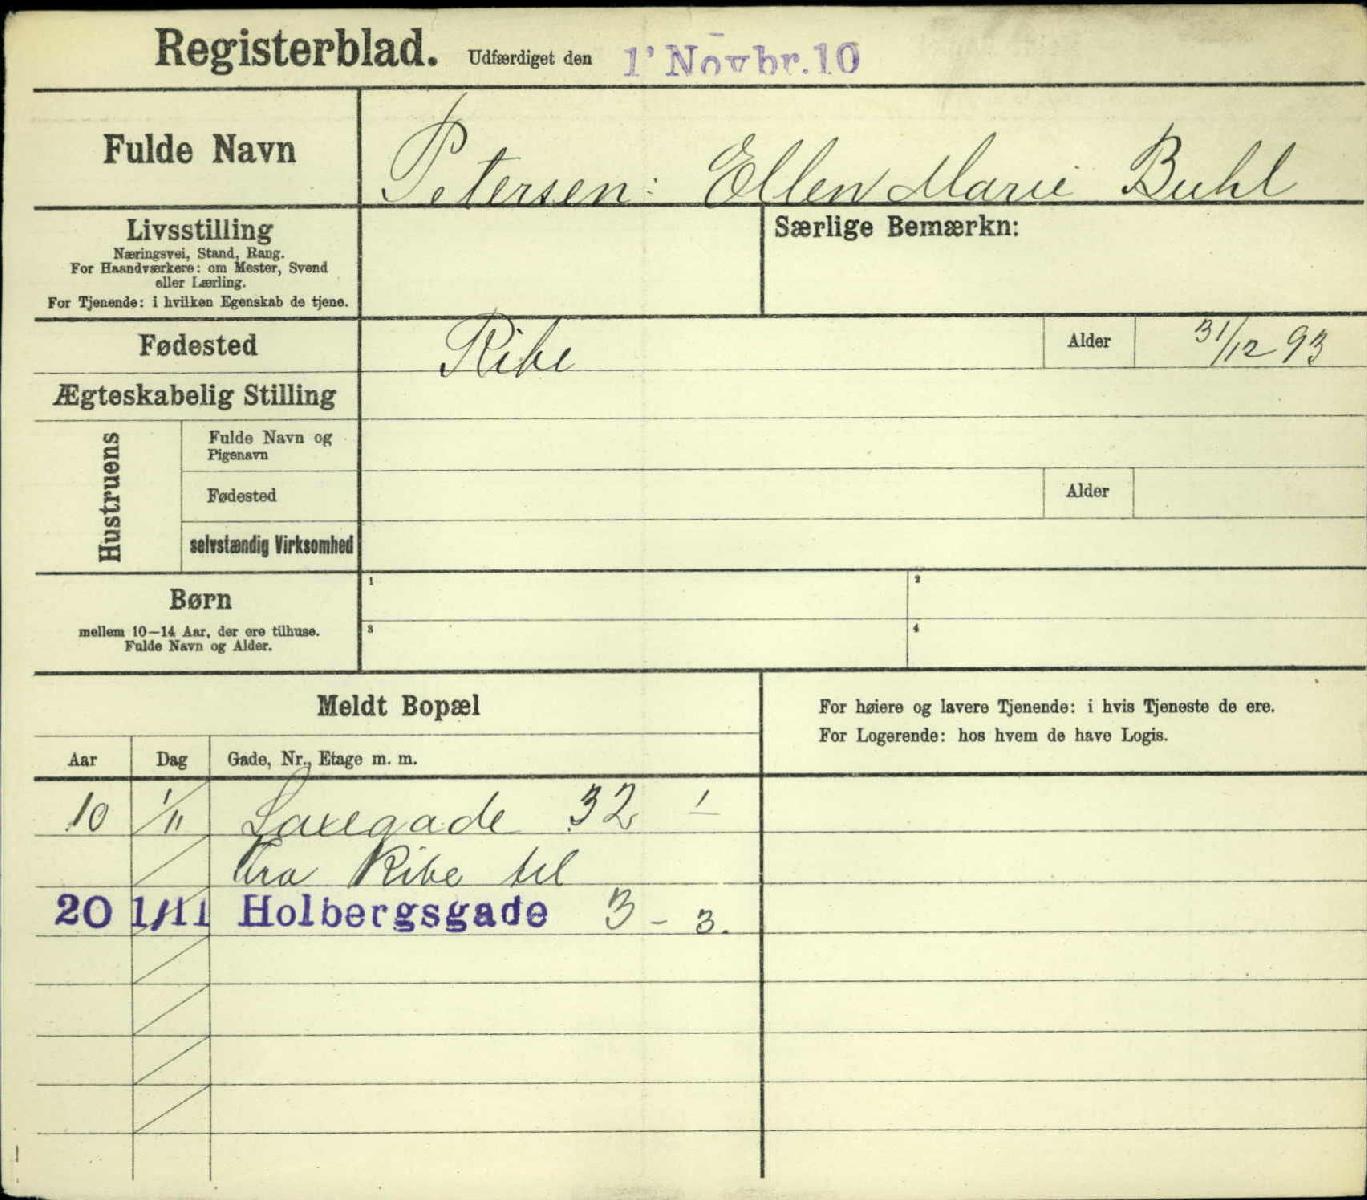 Registerblad. Udfærdiget den 1' Novbr. 10
Fulde Navn Petersen: Ellen Marie Buhl
Livsstilling
Næringsvei, Stand, Rang.
For Haandværkere: om Mester, Svend
eller Lærling.
For Tjenende: i hvilken Egenskab de tjene.
Særlige Bemærkn:
Fødested Ribe Alder 31/12 93
Ægteskabelig Stilling
Hustruens
Fulde Navn og
Pigenavn
Fødested Alder
selvstændig Virksomhed
Børn
mellem 10-14 Aar, der ere tilhuse.
Fulde Navn og Alder.
1 2
3 4
Meldt Bopæl
For høiere og lavere Tjenende: i hvis Tjeneste de ere.
For Logerende: hos hvem de have Logis.
Aar Dag Gade, Nr., Etage m. m.
10 1/11 Saxegade 32 1
fra Ribe til
20 1/11 Holbergsgade 3 - 3.